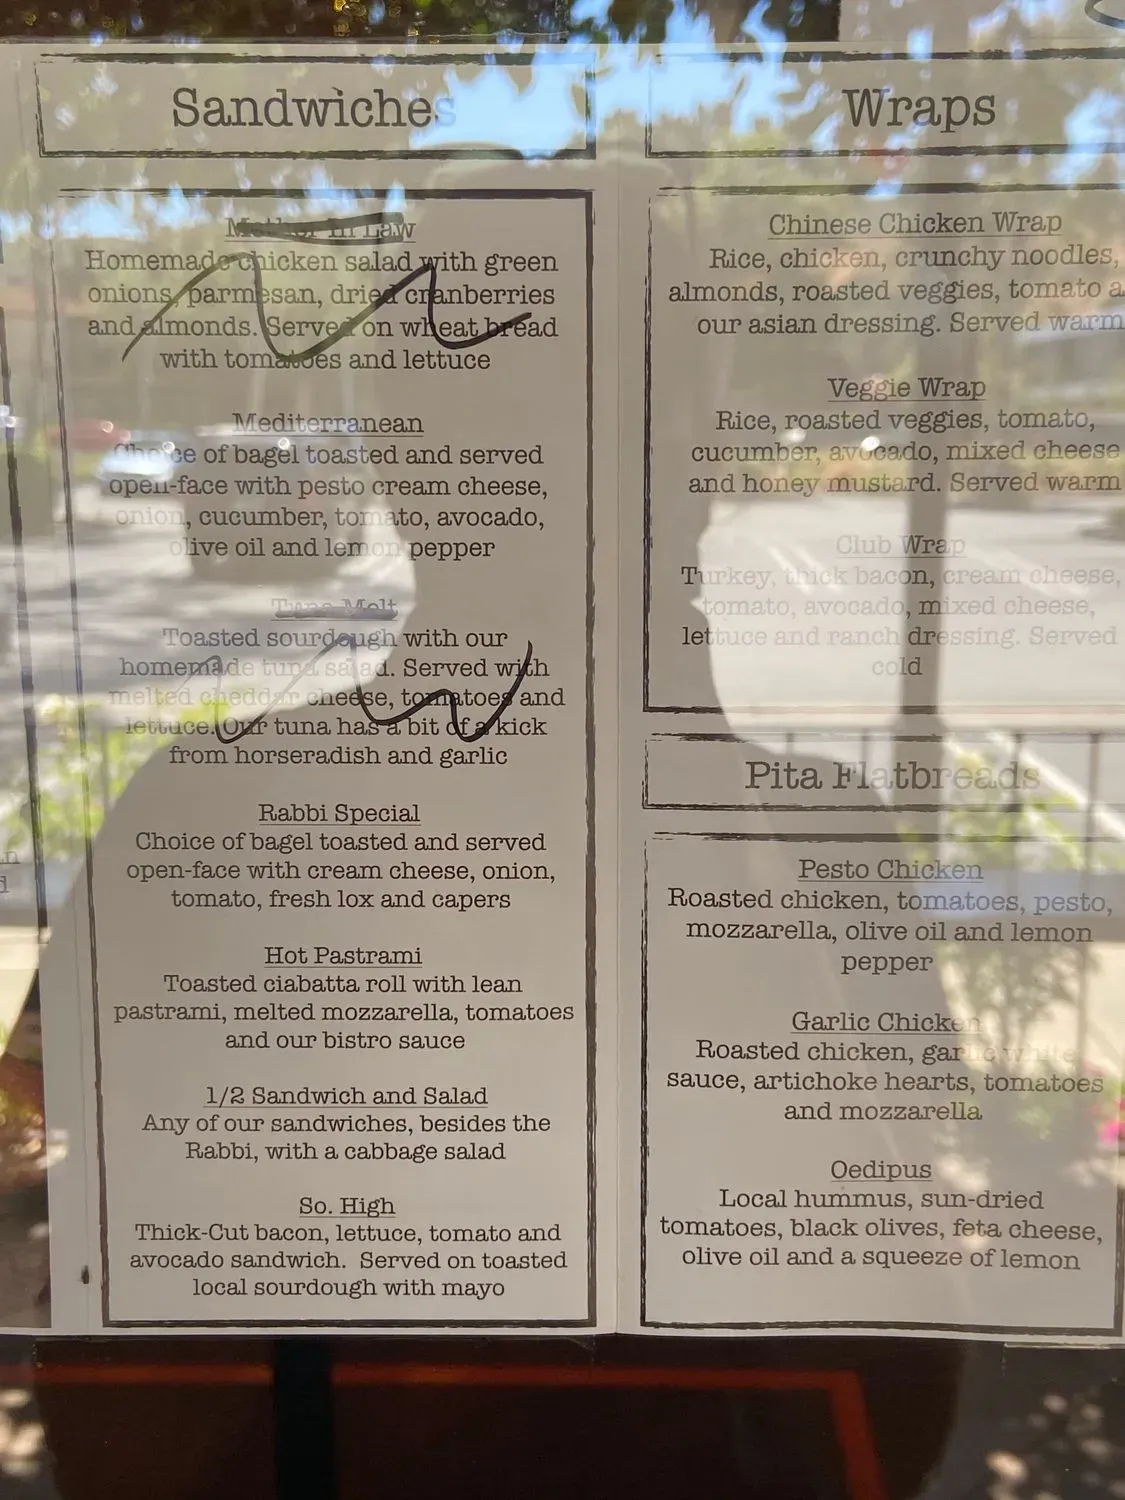 Sandwiches
Mother In Law
Homemade chicken salad with green
onions, parmesan, dried cranberries
and almonds. Served on wheat bread
with tomatoes and lettuce
Mediterranean
Choice of bagel toasted and served
open-face with pesto cream cheese,
onion, cucumber, tomato, avocado,
olive oil and lemon pepper
Tuna Melt
Toasted sourdough with our
homemade tuna salad. Served with
melted cheddar cheese, tomatoes and
lettuce. Our tuna has a bit of a kick
from horseradish and garlic
Rabbi Special
Choice of bagel toasted and served
open-face with cream cheese, onion,
tomato, fresh lox and capers
Hot Pastrami
Toasted ciabatta roll with lean
pastrami, melted mozzarella, tomatoes
and our bistro sauce
1/2 Sandwich and Salad
Any of our sandwiches, besides the
Rabbi, with a cabbage salad
So. High
Thick-Cut bacon, lettuce, tomato and
avocado sandwich. Served on toasted
local sourdough with mayo
Wraps
Chinese Chicken Wrap
Rice, chicken, crunchy noodles,
almonds, roasted veggies, tomato
our asian dressing. Served warm
Veggie Wrap
Rice, roasted veggies, tomato,
cucumber, avocado, mixed cheese
and honey mustard. Served warm
Club Wrap
Turkey, thick bacon, cream cheese,
tomato, avocado, mixed cheese,
lettuce and ranch dressing. Served
cold
Pita Flatbreads
Pesto Chicken
Roasted chicken, tomatoes, pesto,
mozzarella, olive oil and lemon
pepper
Garlic Chicken
Roasted chicken, garlic white
sauce, artichoke hearts, tomatoes
and mozzarella
Oedipus
Local hummus, sun-dried
tomatoes, black olives, feta cheese,
olive oil and a squeeze of lemon